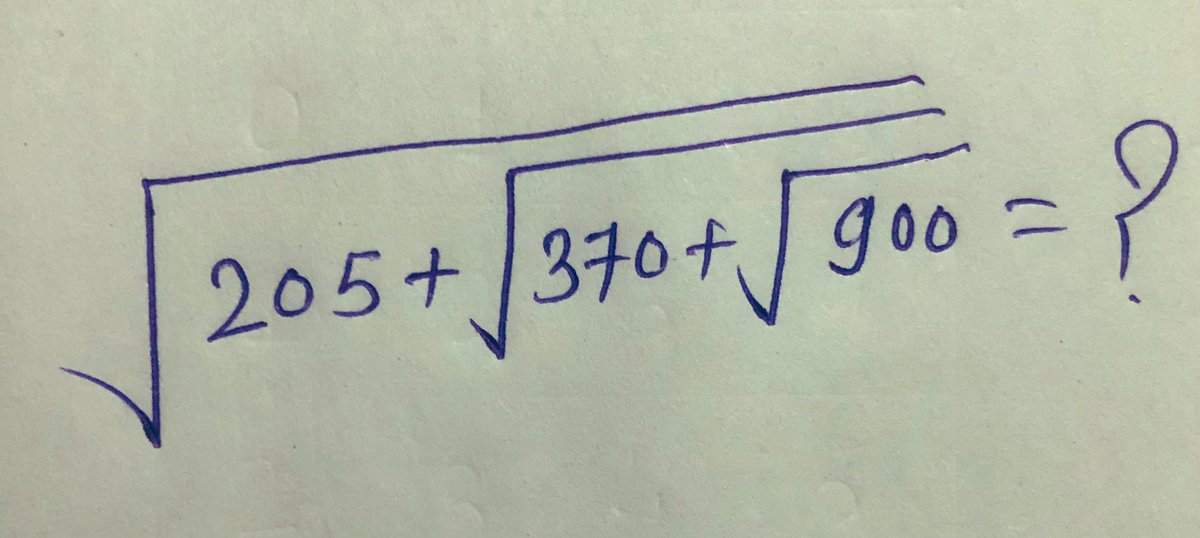 √205+√370+√900 = ?